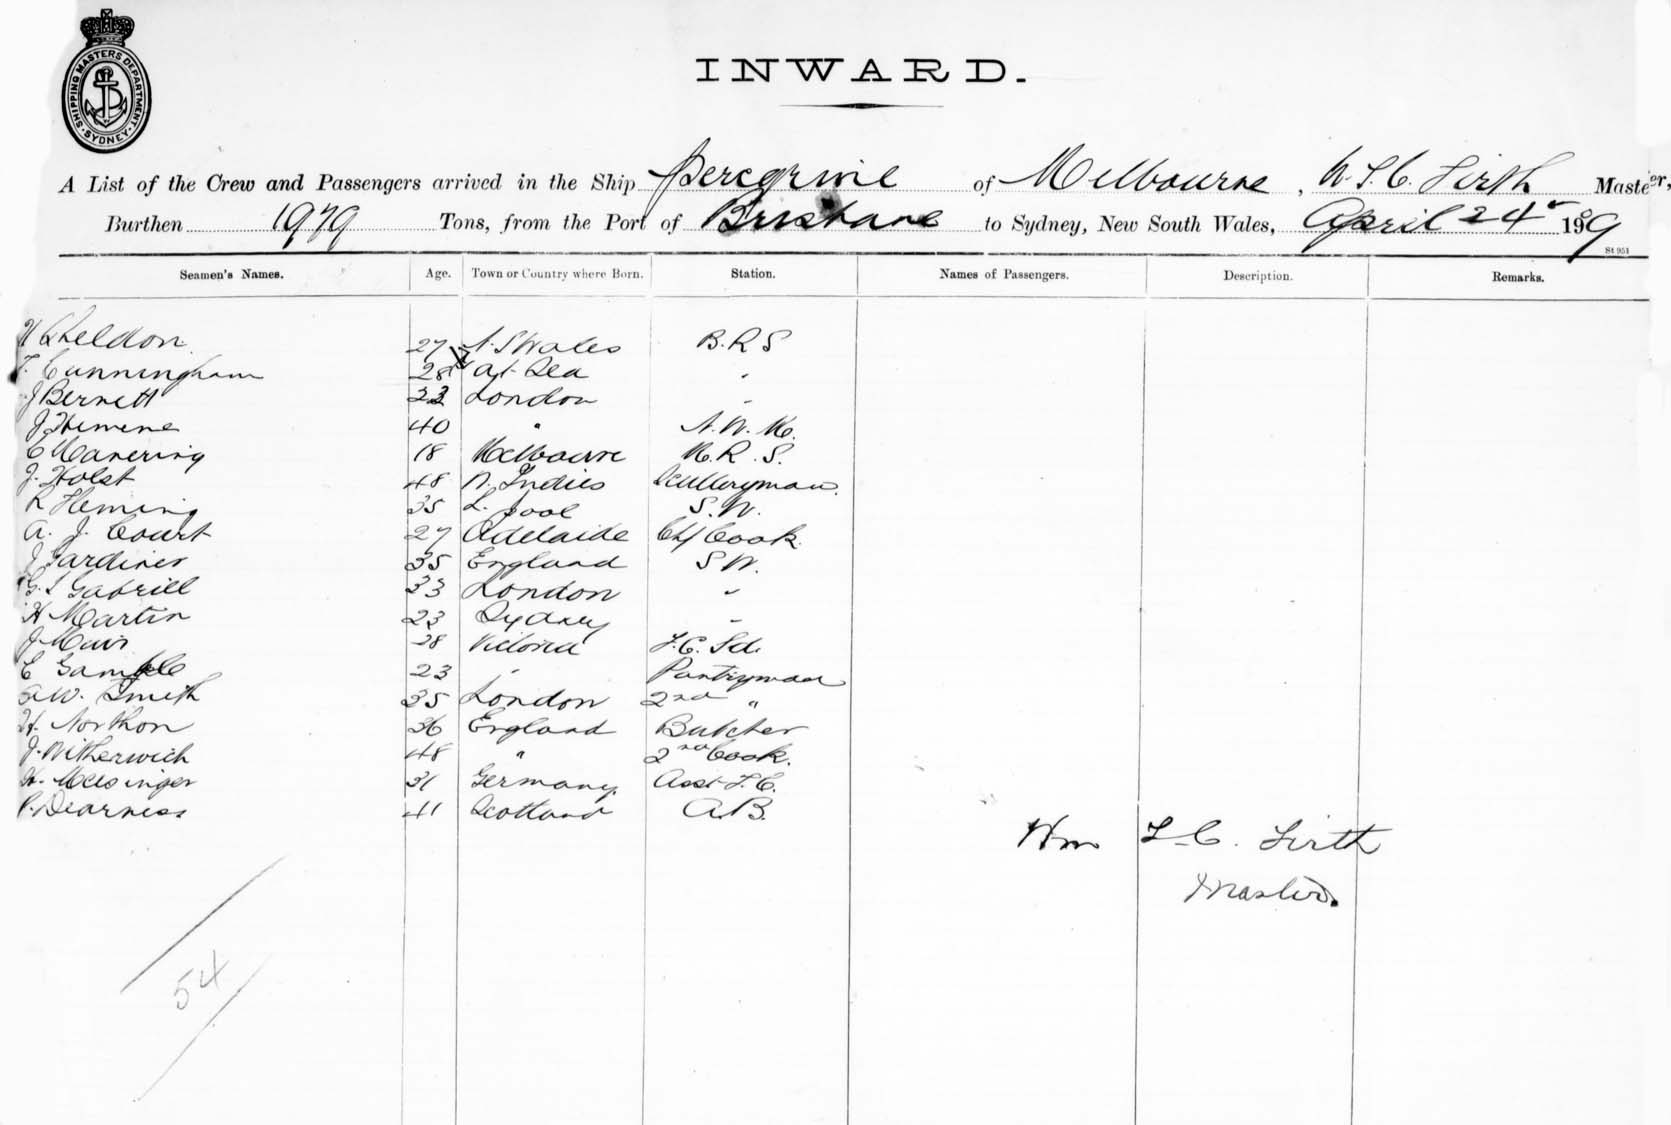 SHIPPING MASTERS DEPARTMENT SYDNEY
INWARD.
A List of the Crew and Passengers arrived in the Ship Peregrine of Melbourne, W. F. C. Firth Master,
Burthen 1979 Tons, from the Port of Brisbane to Sydney, New South Wales, April 24 1909
St 951
Seamen's Names. Age. Town or Country where Born. Station. Names of Passengers. Description. Remarks.
Sheldon 27 N. S Wales B. R S
Cunningham 28 At Sea "
J Bernett 23 London "
J 40 " N. W. K.
C Manering 18 Melbourne M. R. S.
J. Holst 48 W. Indies Sculleryman.
R Fleming 35 L. pool S. W.
A. J. Court 27 Adelaide Chf Cook.
J Gardiner 35 England S W.
G. S Gabriell 33 London "
H Martin 23 Sydney "
J Muir 28 Victoria F. C. Sd.
E Gamble 23 " Pantryman
A W. Smith 35 London 2nd "
H. Northon 36 England Butcher
J. Witherwick 48 " 2nd Cook.
H. Meisinger 31 Germany. Asst F. C.
P. Dearness 41 Scotland A.B.
Wm F. C. Firth
Master.
54